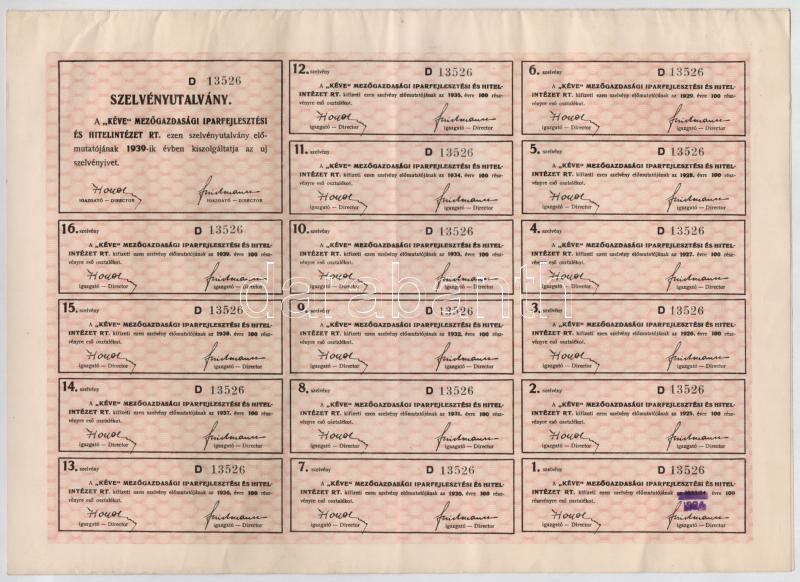 D 13526
SZELVÉNYUTALVÁNY.
A „KÉVE“ MEZŐGAZDASÁGI IPARFEJLESZTÉSI
ÉS HITELINTÉZET RT. ezen szelvényutalvány elő-
mutatójának 1939-ik évben kiszolgáltatja az uj
szelvényivet.
IGAZGATÓ — DIRECTOR IGAZGATÓ — DIRECTOR
16. szelvény D 13526
A „KÉVE“ MEZŐGAZDASÁGI IPARFEJLESZTÉSI ÉS HITEL-
INTÉZET RT. kifizeti ezen szelvény előmutatójának az 1939. évre 100 rész-
vényre eső osztalékot.
igazgató — Director igazgató — Director
15. szelvény D 13526
A „KÉVE“ MEZŐGAZDASÁGI IPARFEJLESZTÉSI ÉS HITEL-
INTÉZET RT. kifizeti ezen szelvény előmutatójának az 1938. évre 100 rész-
vényre eső osztalékot.
igazgató — Director igazgató — Director
14. szelvény D 13526
A „KÉVE“ MEZŐGAZDASÁGI IPARFEJLESZTÉSI ÉS HITEL-
INTÉZET RT. kifizeti ezen szelvény előmutatójának az 1937. évre 100 rész-
vényre eső osztalékot.
igazgató — Director igazgató — Director
13. szelvény D 13526
A „KÉVE“ MEZŐGAZDASÁGI IPARFEJLESZTÉSI ÉS HITEL-
INTÉZET RT. kifizeti ezen szelvény előmutatójának az 1936. évre 100 rész-
vényre eső osztalékot.
igazgató — Director igazgató — Director
12. szelvény D 13526
A „KÉVE“ MEZŐGAZDASÁGI IPARFEJLESZTÉSI ÉS HITEL-
INTÉZET RT. kifizeti ezen szelvény előmutatójának az 1935. évre 100 rész-
vényre eső osztalékot.
igazgató — Director igazgató — Director
11. szelvény D 13526
A „KÉVE“ MEZŐGAZDASÁGI IPARFEJLESZTÉSI ÉS HITEL-
INTÉZET RT. kifizeti ezen szelvény előmutatójának az 1934. évre 100 rész-
vényre eső osztalékot.
igazgató — Director igazgató — Director
10. szelvény D 13526
A „KÉVE“ MEZŐGAZDASÁGI IPARFEJLESZTÉSI ÉS HITEL-
INTÉZET RT. kifizeti ezen szelvény előmutatójának az 1933. évre 100 rész-
vényre eső osztalékot.
igazgató — Director igazgató — Director
9. szelvény D 13526
A „KÉVE“ MEZŐGAZDASÁGI IPARFEJLESZTÉSI ÉS HITEL-
INTÉZET RT. kifizeti ezen szelvény előmutatójának az 1932. évre 100 rész-
vényre eső osztalékot.
igazgató — Director igazgató — Director
8. szelvény D 13526
A „KÉVE“ MEZŐGAZDASÁGI IPARFEJLESZTÉSI ÉS HITEL-
INTÉZET RT. kifizeti ezen szelvény előmutatójának az 1931. évre 100 rész-
vényre eső osztalékot.
igazgató — Director igazgató — Director
7. szelvény D 13526
A „KÉVE“ MEZŐGAZDASÁGI IPARFEJLESZTÉSI ÉS HITEL-
INTÉZET RT. kifizeti ezen szelvény előmutatójának az 1930. évre 100 rész-
vényre eső osztalékot.
igazgató — Director igazgató — Director
6. szelvény D 13526
A „KÉVE“ MEZŐGAZDASÁGI IPARFEJLESZTÉSI ÉS HITEL-
INTÉZET RT. kifizeti ezen szelvény előmutatójának az 1929. évre 100 rész-
vényre eső osztalékot.
igazgató — Director igazgató — Director
5. szelvény D 13526
A „KÉVE“ MEZŐGAZDASÁGI IPARFEJLESZTÉSI ÉS HITEL-
INTÉZET RT. kifizeti ezen szelvény előmutatójának az 1928. évre 100 rész-
vényre eső osztalékot.
igazgató — Director igazgató — Director
4. szelvény D 13526
A „KÉVE“ MEZŐGAZDASÁGI IPARFEJLESZTÉSI ÉS HITEL-
INTÉZET RT. kifizeti ezen szelvény előmutatójának az 1927. évre 100 rész-
vényre eső osztalékot.
igazgató — Director igazgató — Director
3. szelvény D 13526
A „KÉVE“ MEZŐGAZDASÁGI IPARFEJLESZTÉSI ÉS HITEL-
INTÉZET RT. kifizeti ezen szelvény előmutatójának az 1926. évre 100 rész-
vényre eső osztalékot.
igazgató — Director igazgató — Director
2. szelvény D 13526
A „KÉVE“ MEZŐGAZDASÁGI IPARFEJLESZTÉSI ÉS HITEL-
INTÉZET RT. kifizeti ezen szelvény előmutatójának az 1925. évre 100 rész-
vényre eső osztalékot.
igazgató — Director igazgató — Director
1. szelvény D 13526
A „KÉVE“ MEZŐGAZDASÁGI IPARFEJLESZTÉSI ÉS HITEL-
INTÉZET RT. kifizeti ezen szelvény előmutatójának évre 100
vényre eső osztalékot. 1924
igazgató — Director igazgató — Director
darabanth